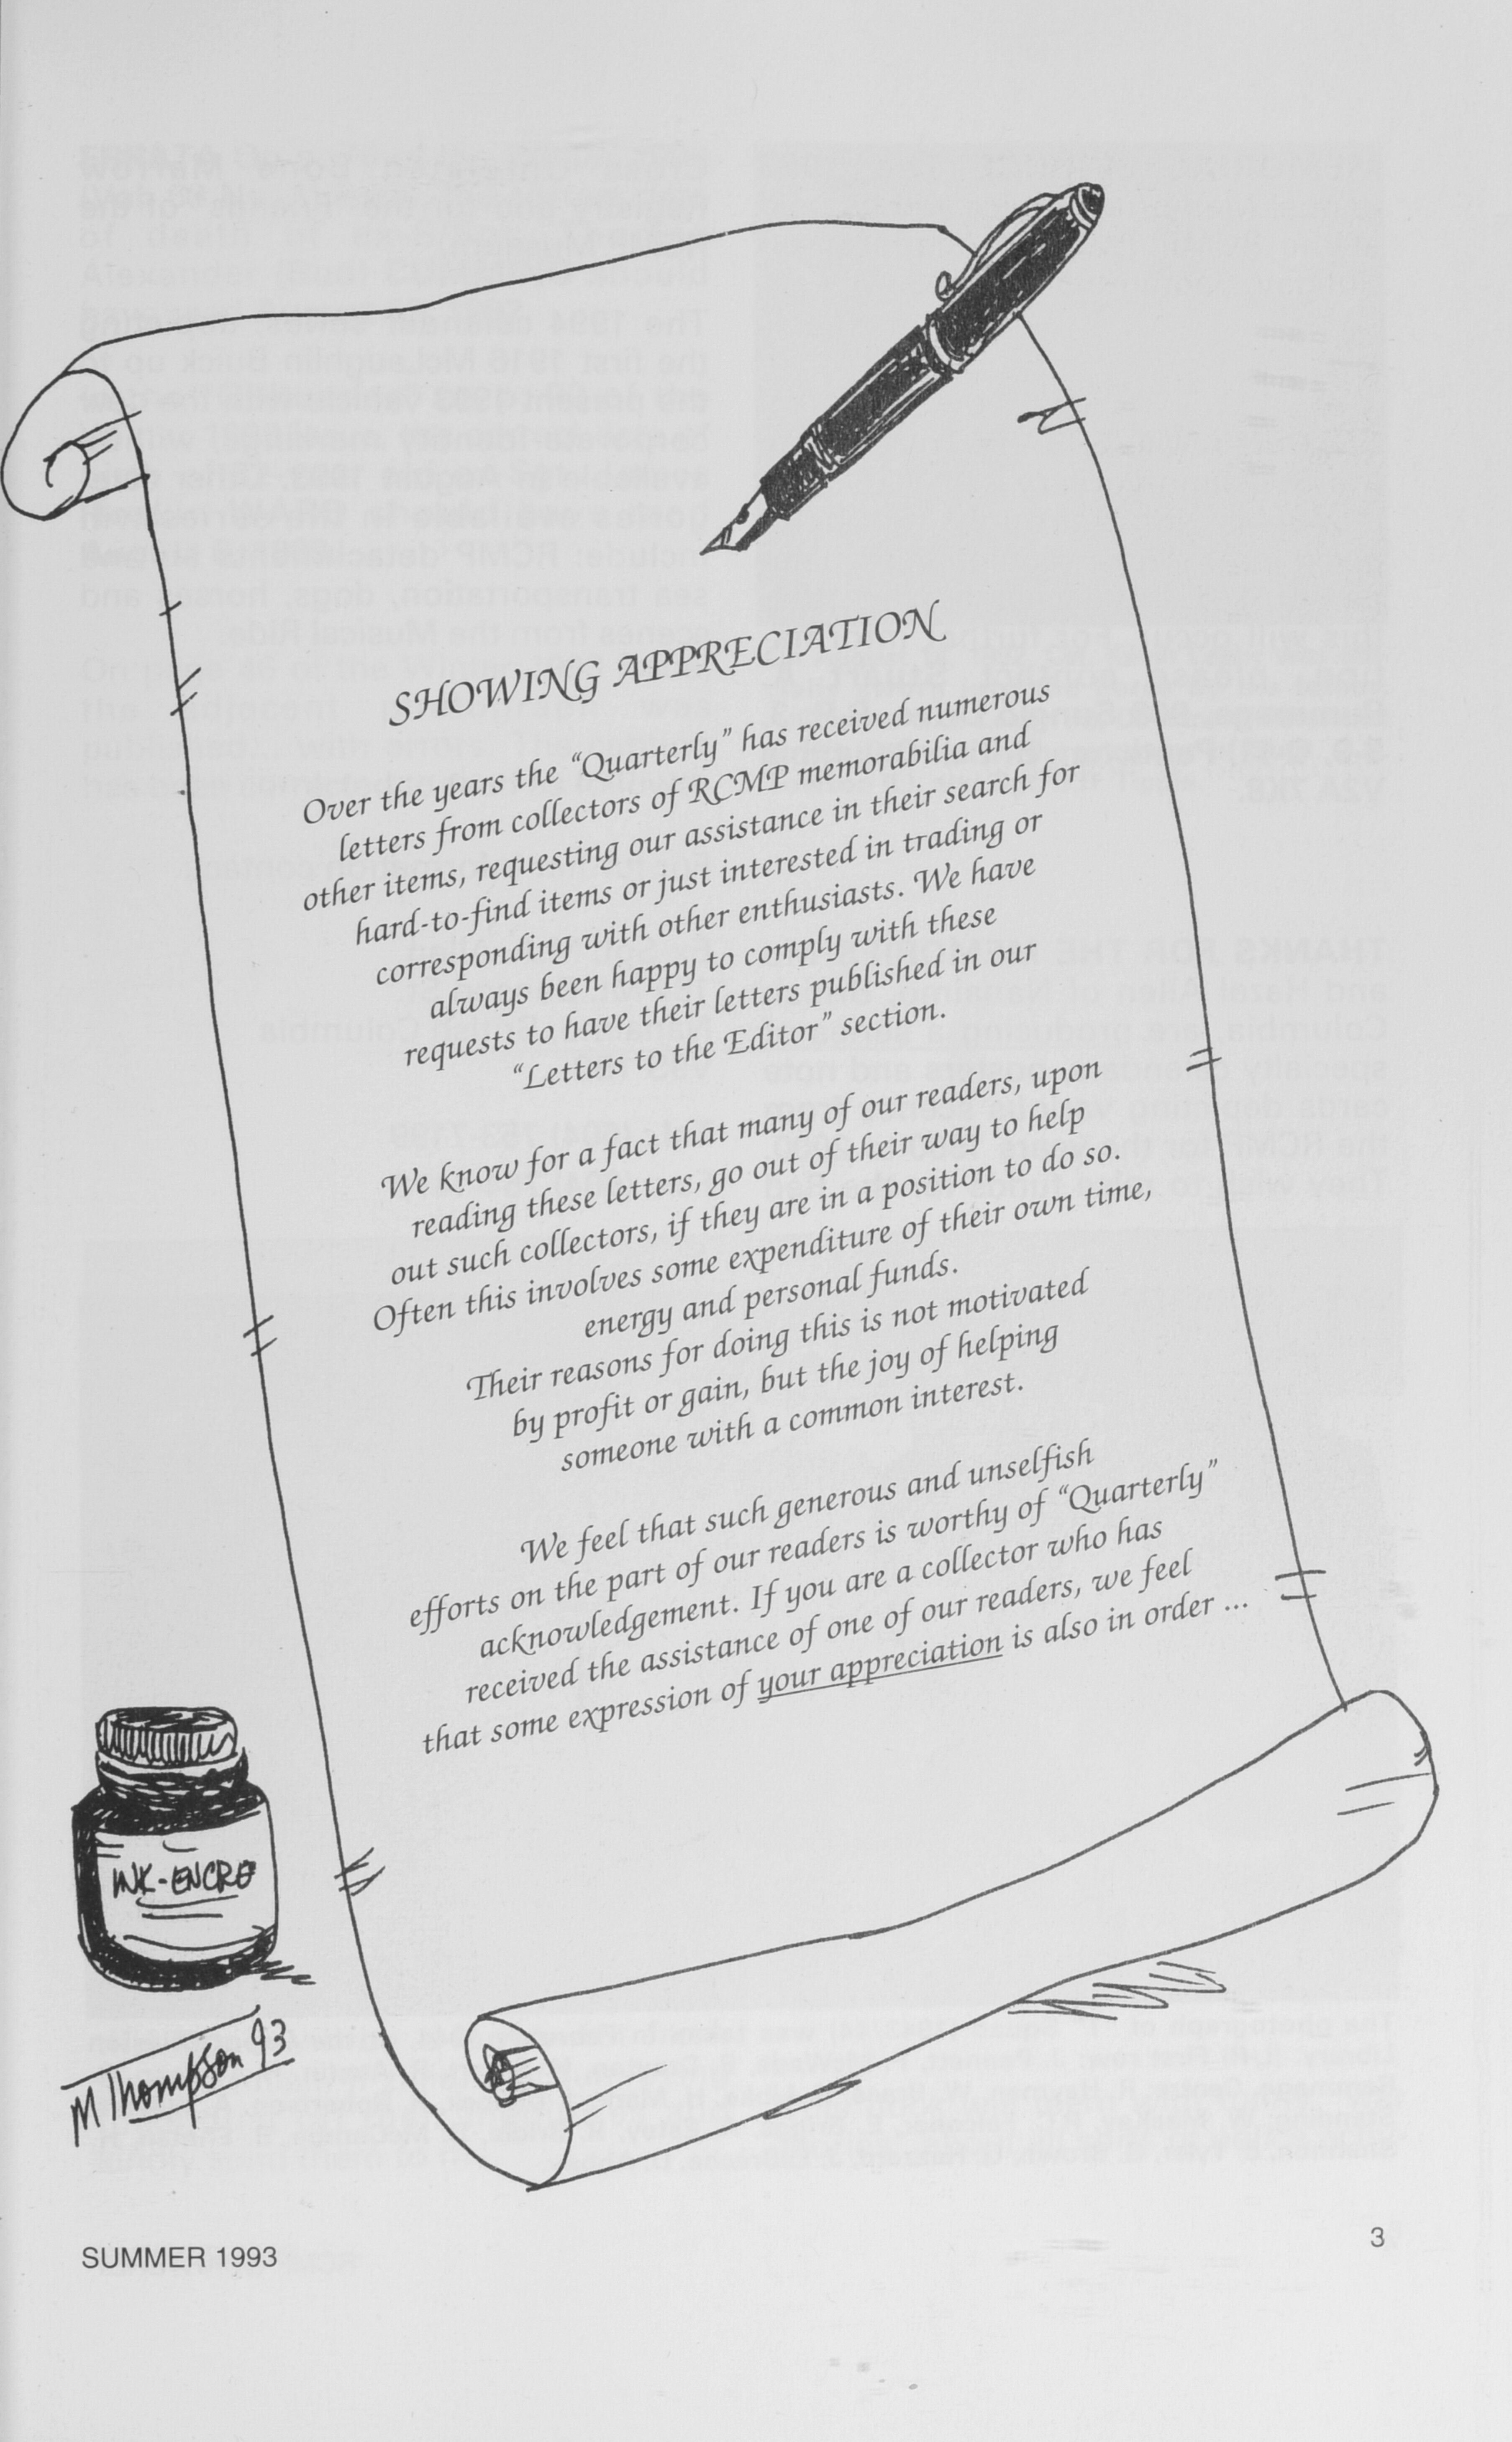 SHOWING APPRECIATION
Over the years the “Quarterly” has received numerous
letters from collectors of RCMP memorabilia and
other items, requesting our assistance in their search for
hard-to-find items or just interested in trading or
corresponding with other enthusiasts. We have
always been happy to comply with these
requests to have their letters published in our
“Letters to the Editor” section.
We know for a fact that many of our readers, upon
reading these letters, go out of their way to help
out such collectors, if they are in a position to do so.
Often this involves some expenditure of their own time,
energy and personal funds.
Their reasons for doing this is not motivated
by profit or gain, but the joy of helping
someone with a common interest.
We feel that such generous and unselfish
efforts on the part of our readers is worthy of “Quarterly”
acknowledgement. If you are a collector who has
received the assistance of one of our readers, we feel
that some expression of your appreciation is also in order ...
INK-ENCRE
M Thompson 93
SUMMER 1993
3